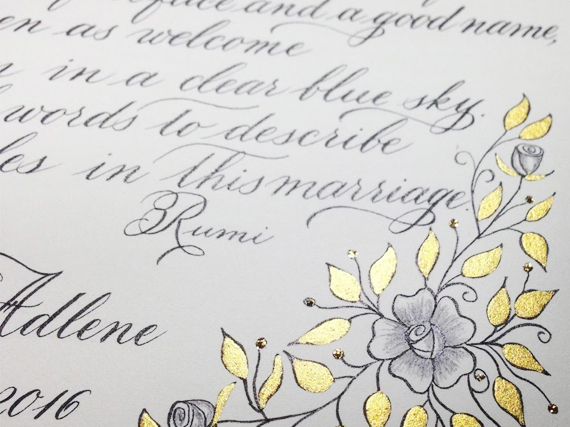 and a good name,
as welcome
in a clear blue sky.
words to describe
in this marriage.
Rumi
Adlene
2016